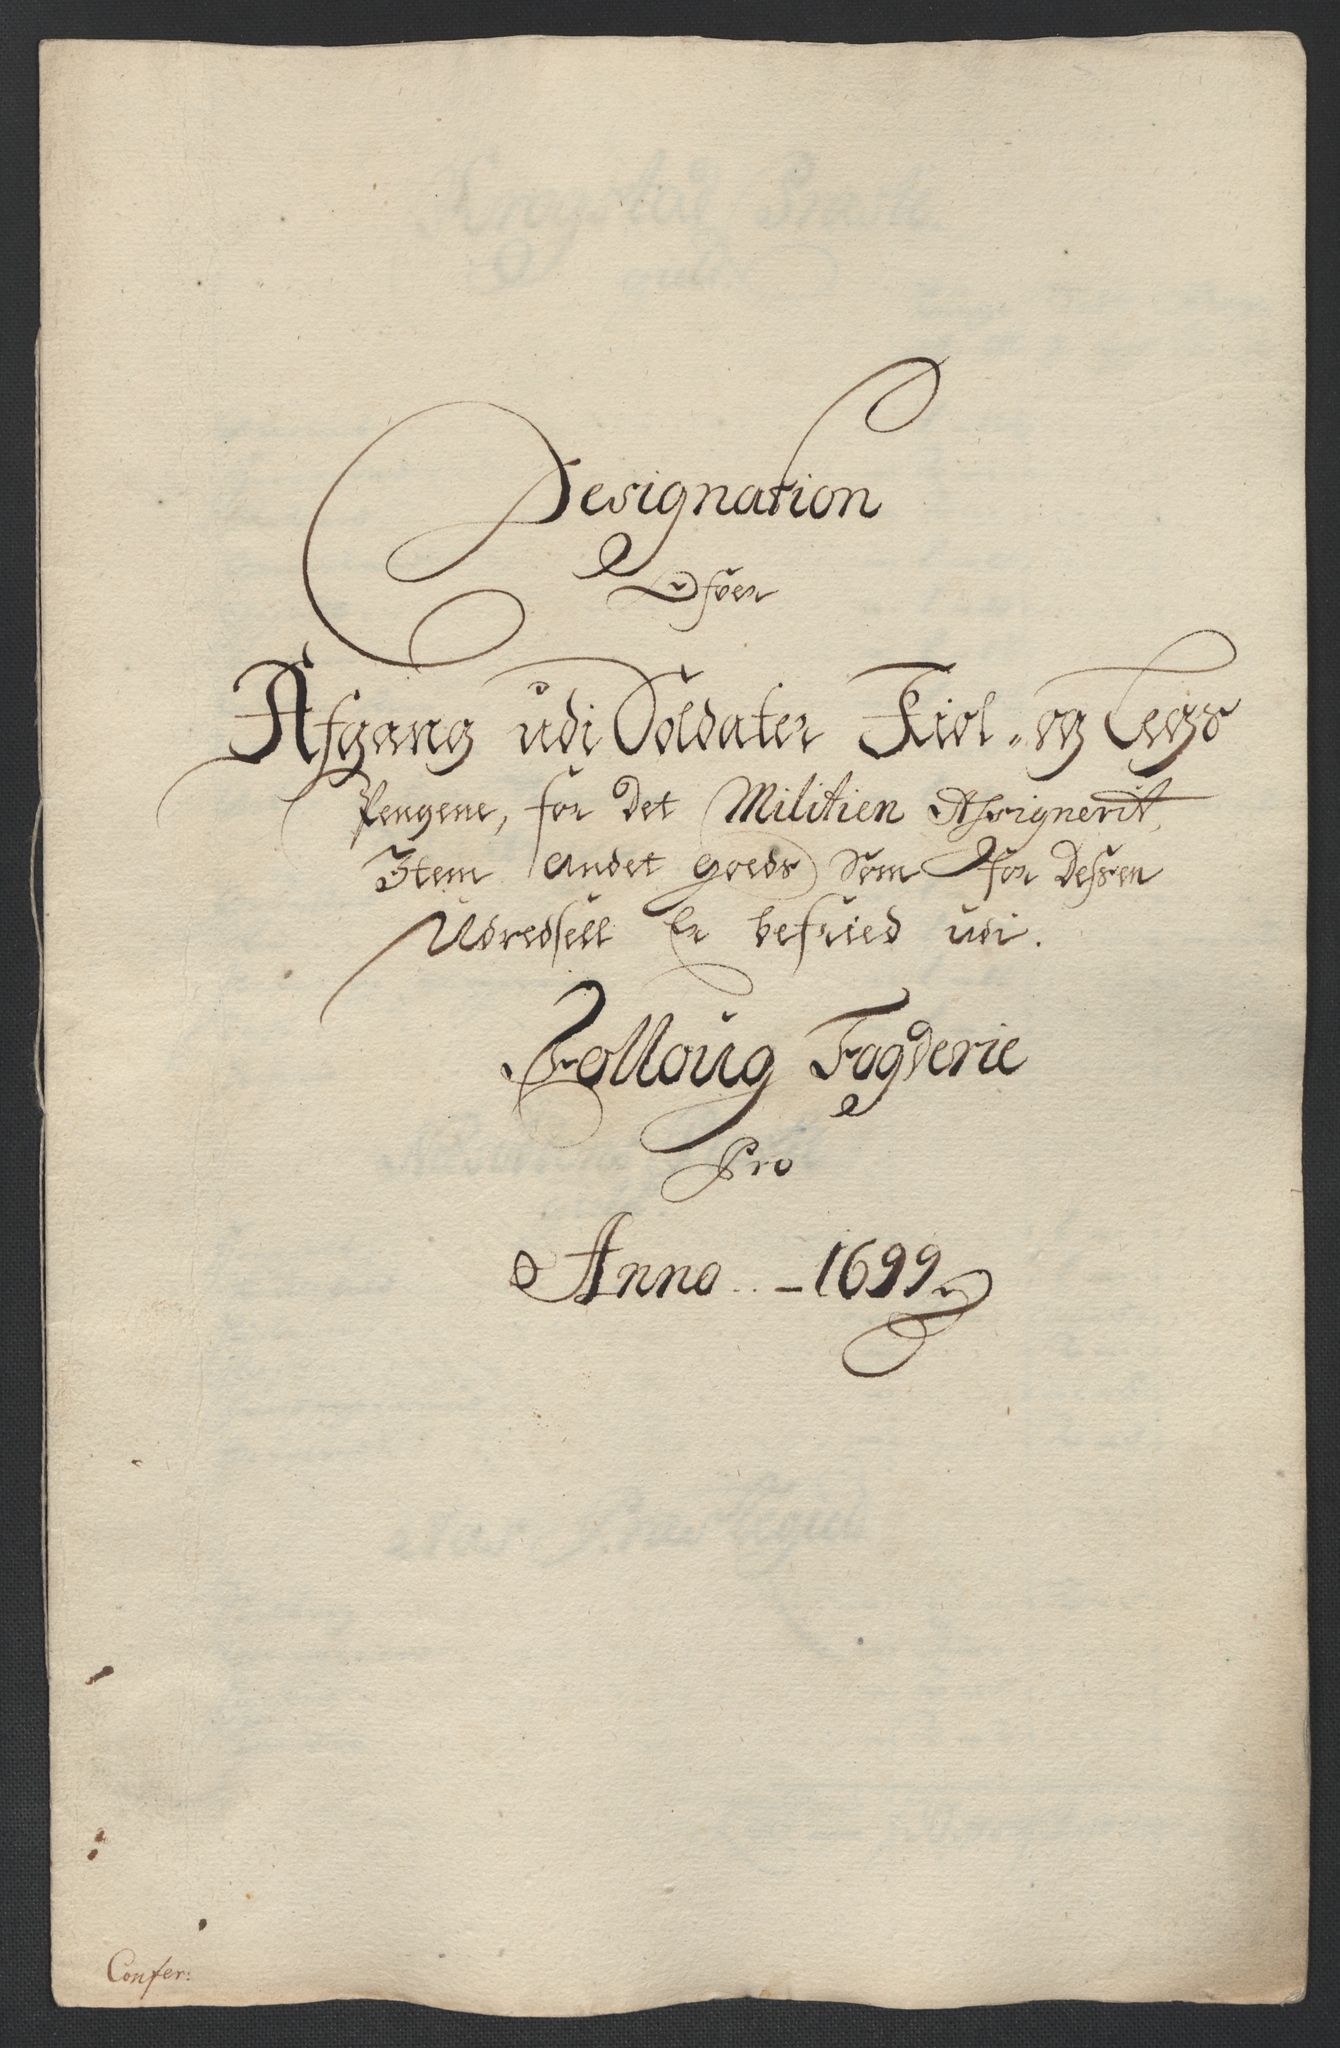 Designation
Ofver
Afgang udi Soldater Kiol- og Legs
Pengene, for det Militien Assignerit,
Item andet goeds som for dessen
Udredsell Er befried udi.
Folloug Fogderie
Pro
Anno - 1699
Confer: